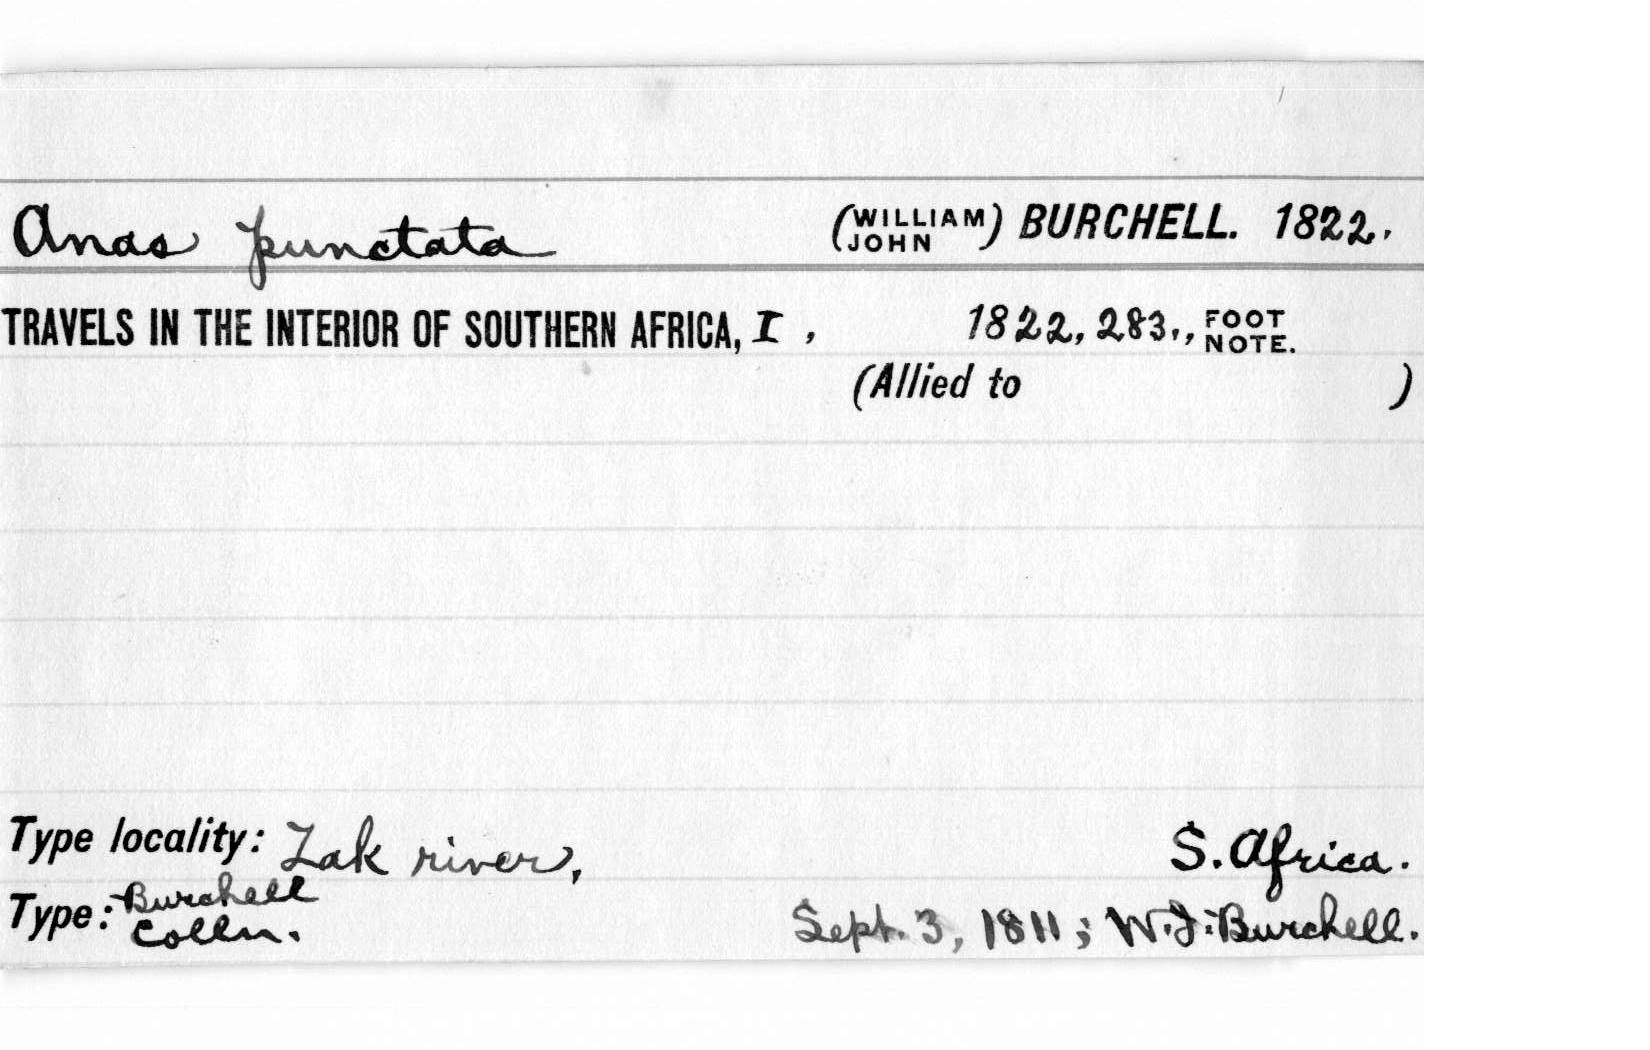 Anas punctata (WILLIAM JOHN) BURCHELL. 1822.
TRAVELS IN THE INTERIOR OF SOUTHERN AFRICA, I, 1822, 283., FOOT NOTE.
(Allied to )
Type locality: Zak river, S. Africa.
Type: Burchell Colln. Sept. 3, 1811; W.J. Burchell.